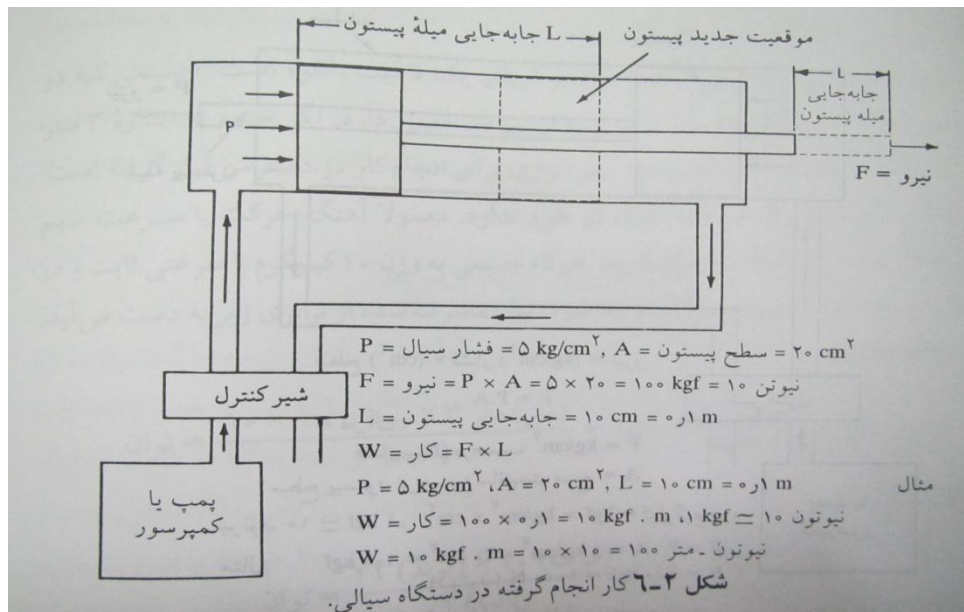 L جابه‌جایی میلهٔ پیستون
موقعیت جدید پیستون
L
جابه‌جایی
میله پیستون
P
F = نیرو
شیر کنترل
پمپ یا
کمپرسور
P = فشار سیال = ۵ kg/cm², A = سطح پیستون = ۲۰ cm²
F = نیرو = P × A = ۵ × ۲۰ = ۱۰۰ kgf = ۱۰ نیوتن
L = جابه‌جایی پیستون = ۱۰ cm = ۰٫۱ m
W = کار = F × L
مثال P = ۵ kg/cm², A = ۲۰ cm², L = ۱۰ cm = ۰٫۱ m
W = کار = ۱۰۰ × ۰٫۱ = ۱۰ kgf . m ،۱ kgf ≃ ۱۰ نیوتون
W = ۱۰ kgf . m = ۱۰ × ۱۰ = ۱۰۰ نیوتون ـ متر
شکل ۲-۶ کار انجام گرفته در دستگاه سیالی.